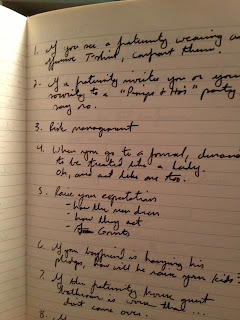 1. If you see a fraternity wearing a
offensive T-shirt, confront them.
2. If a fraternity invites you or your
sorority to a "Pimps & Hos" party
say no.
3. Risk management
4. When you go to a formal, demand
to be treated like a lady.
Oh, and act like one too.
5. Raise your expectations
- how the men dress
- how they act
- Grades
6. If your boyfriend is hazing his
pledges, how will he raise your kids?
7. If the fraternity house
bathroom is worse than ...
don't come over.
8.